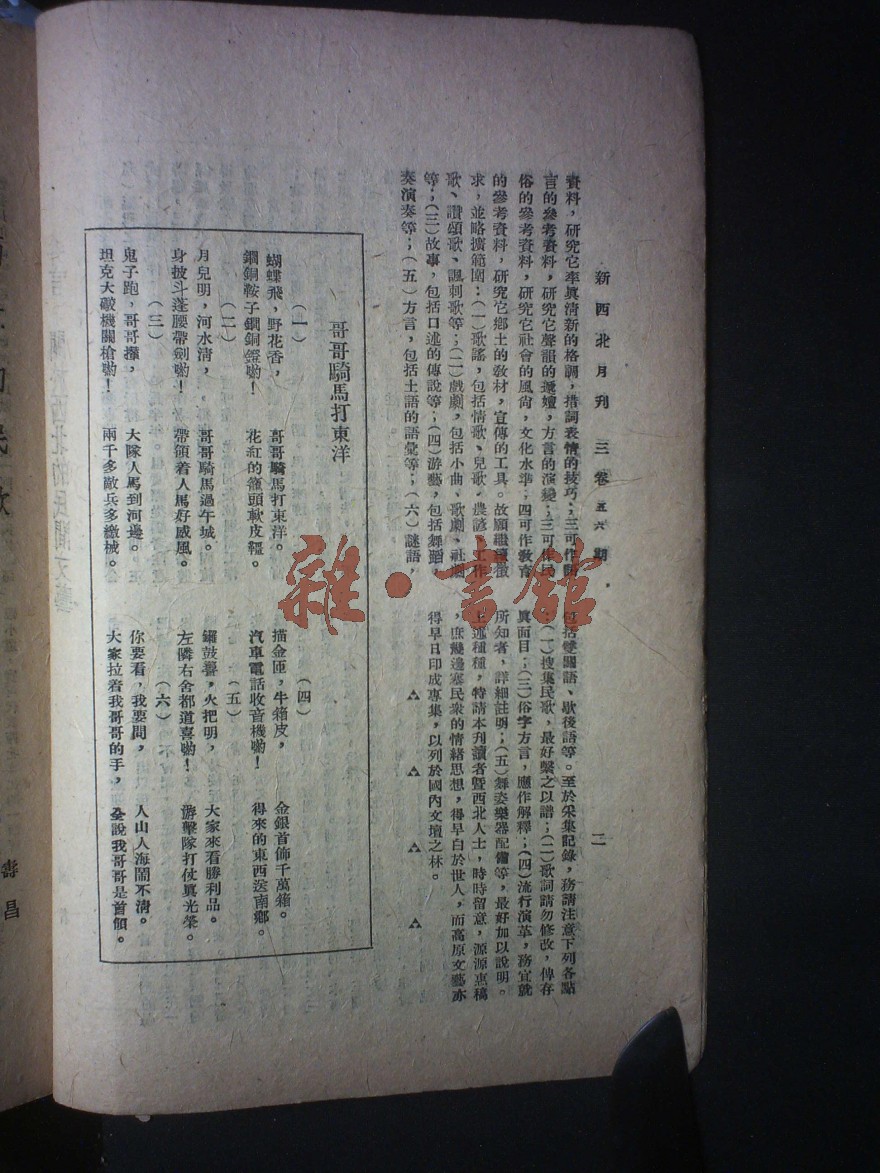 新西北月刊 三卷五六期
二
資料，研究它率眞清新的格調，措詞表情的技巧；二可作語
言的參考資料，研究它聲韻的遞嬗，方言的演變；三可作民
俗的參考資料，研究它社會的風尙，文化水準；四可作教育
的參考資料，研究它鄉土的敎材，宣傳的工具。故願繼續徵
求，並略擴範圍：（一）歌謠，包括情歌、兒歌、農諺、工作
歌、讚頌歌、諷刺歌等；（二）戲劇，包括小曲、歌劇、社劇
等；（三）故事，包括口述的傳說等；（四）游藝，包括舞蹈，
奏演奏等；（五）方言，包括土語的語彙等；（六）謎語，
包括雙關語、歇後語等。至於采集記錄，務請注意下列各點
：（一）搜集民歌，最好繫之以譜；（二）歌詞請勿修改，俾存
眞面目；（三）俗字方言，應作解釋；（四）流行演革，務宜就
所知者，詳細註明；（五）舞姿樂器配備等，最好加以說明。
上述種種，特請本刊讀者暨西北人士，時時留意，源源惠稿
，庶幾邊塞民衆的情緒思想，得早白於世人，而高原文藝亦
得早日印成專集，以列於國內文壇之林。
哥哥騎馬打東洋
（一）
蝴蝶飛，野花香， 哥哥騎馬打東洋。
鋼銅鞍子鋼銅鐙喲！ 花紅的籠頭軟皮韁。
（二）
月兒明，河水清， 哥哥騎馬過午城。
身披斗蓬腰帶劍喲！ 帶領着人馬好威風。
（三）
鬼子跑，哥哥攆， 大隊人馬到河邊。
坦克大礮機關槍喲！ 兩千多敵兵多繳械。
（四）
描金匣，牛箱皮， 金銀首飾千萬箱。
汽車電話收音機喲！ 得來的東西送南鄉。
（五）
鑼鼓響，火把明， 大家來看勝利品。
左隣右舍都道喜喲！ 游擊隊打仗眞光榮。
（六）
你要看，我要問， 人山人海鬧不清。
大家拉着我哥哥的手， 全說我哥哥是首領。
壽昌
雜·書館